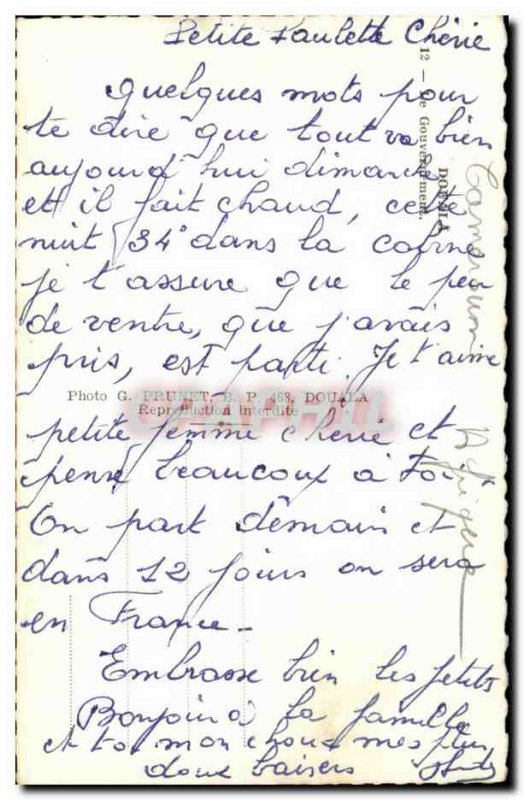 Petite Paulette Chérie
Quelques mots pour
te dire que tout va bien
aujourd'hui dimanche
et il fait chaud, cette
nuit 34° dans la cabine
je t'assure que le peu
de ventre, que j'avais
pris, est parti. Je t'aime
Photo G. PRUNET, B. P. 468, DOUALA
Reproduction interdite
petite femme chérie et
pense beaucoup à toi
On part demain et
dans 12 jours on sera
en France -
Embrasse bien les petits
Bonjour à la famille
et toi mon choux mes plus
doux baisers
DOUALA
12 — Le Gouvernement.
Cameroun